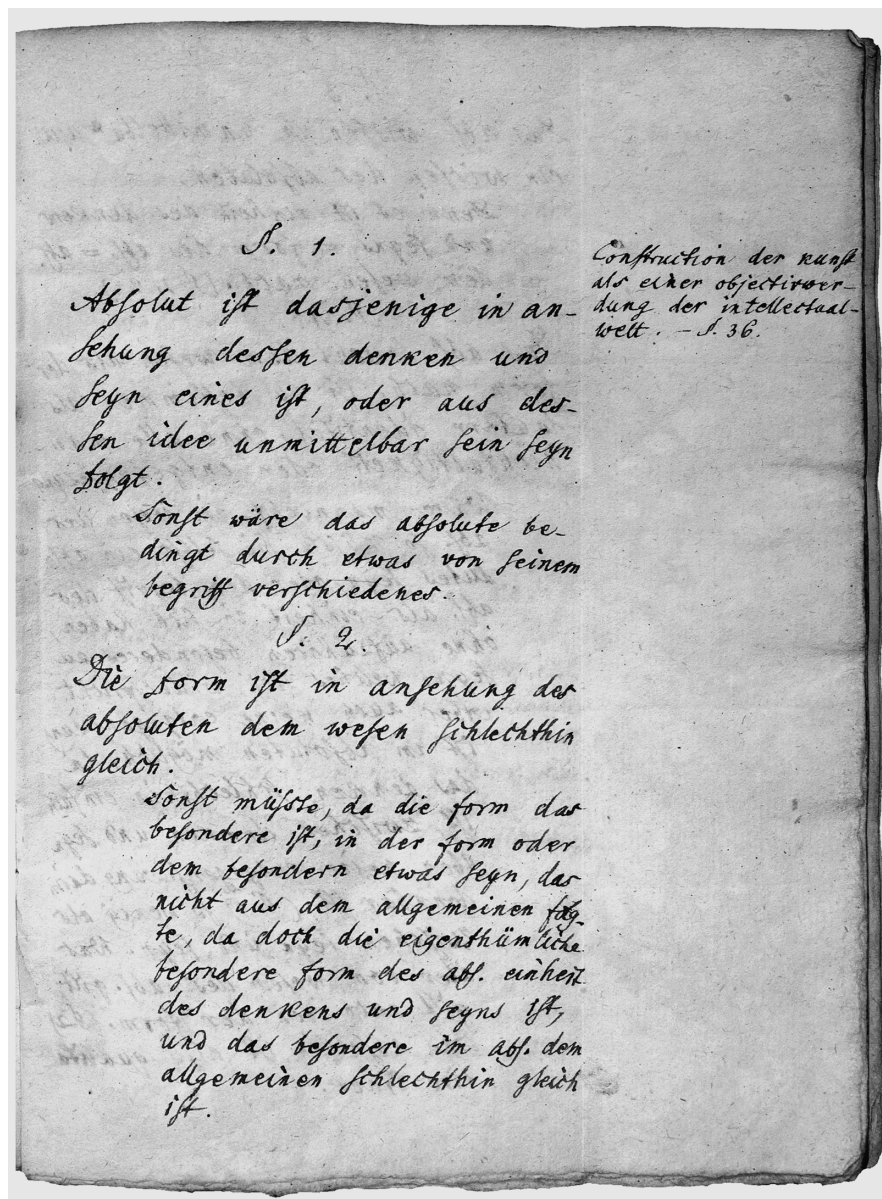 §. 1.
Absolut ist dasjenige in an-
sehung dessen denken und
seyn eines ist, oder aus des-
sen idee unmittelbar sein seyn
folgt.
Sonst wäre das absolute be-
dingt durch etwas von seinem
begriff verschiedenes.
§. 2.
Die form ist in ansehung des
absoluten dem wesen schlechthin
gleich.
Sonst müsste, da die form das
besondere ist, in der form oder
dem besondern etwas seyn, das
nicht aus dem allgemeinen folg-
te, da doch die eigenthümliche
besondere form des abs. einheit
des denkens und seyns ist,
und das besondere im abs. dem
allgemeinen schlechthin gleich
ist.
Construction der kunst
als einer objectivwer-
dung der intellectual-
welt. – §. 36.